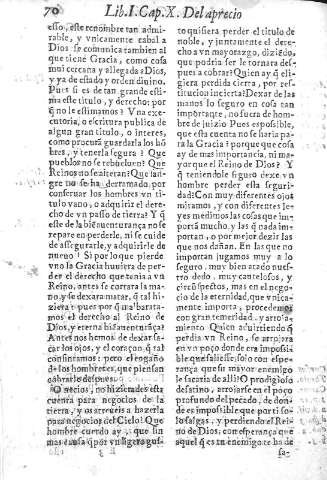 70 Lib.I.Cap.X. Del aprecio
esso, este renombre tan admi-
rable, y vnicamente cabal a
Dios se comunica tambien al
que tiene Gracia, como cosa
mui cercana y allegada a Dios,
y ya de estado y orden divino.
Pues si es de tan grande esti-
ma este titulo, y derecho: por
q̃ no le estimamos? Vna exe-
cutoria, o escritura publica de
algun gran titulo, o interes,
como procurã guardarla los hõ
bres, y tenerla segura? Que
pueblos no se rebuelven? Que
Reinos no se alteran? Que san-
gre no se ha derramado, por
conservar los hombres vn ti-
tulo vano, o adquirir el dere-
cho de vn passo de tierra? Y q̃
esse de la bienaventurança no se
repare en perderle, ni se cuide
de assegurarle, y adquirirle de
nuevo! Si por lo que pierde
vno la Gracia huviera de per-
der el derecho que tenia a vn
Reino, antes se cortara la ma-
no, y se dexara matar, q̃ tal hi-
ziera: pues por q̃ ma baratea-
mos el derecho al Reino de
Dios, y eterna biẽaventurãça?
Antes nos hemos de dexar sa-
car los ojos, y el coraçon, q̃ tal
consintamos: pero el engaño
de los hombres, que piensan
cobrarle despues.
O necios, no hizierades esta
cuenta para negocios de la
tierra, y os atreveis a hazerla
para negocios del Cielo! Que
hombre cuerdo ay que sin
mas causa q̃ por vn ligero gus-
to quisiera perder el titulo de
noble, y juntamente el derecho
a vn mayorazgo, diziẽdo,
que podria ser le tornara des-
pues a cobrar? Quien ay q̃ eli-
giera perdida cierta, por res-
titucion incierta? Dexar de las
manos lo seguro en cosa tan
importante, no fuera de hom-
bre de juizio Pues es possible,
que esta cuenta no se haria pa-
ra la Gracia? porque que cosa
ay de mas importancia, ni ma-
yor que el Reino de Dios? Y
q̃ teniendole seguro dexe vn
hombre perder esta seguri-
dad? Con muy diferentes ojos
miramos, y con diferentes le-
yes medimos las cosas que im-
portã mucho, y las q̃ nada im-
portan, o por mejor dezir las
que nos dañan. En las que no
importan jugamos muy a lo
seguro, muy bien atado nues-
tro dedo, muy cautelosos, y
circũspectos, mas en el nego-
cio de la eternidad, que vnica-
mente importa, procedemos
con gran temeridad, y arroja-
miento Quien advirtiẽdo q̃
perdia vn Reino, se arrojara
en vn poço donde era imposi-
ble que saliesse, solo con espe-
rança que su mayor enemigo
le sacaria de alli? O prodigioso
desatino, arrojarse en el poço
profundo del pecado, de don-
de es imposible que por ti so-
lo salgas, y perdiendo el Rei-
no de Dios, con esperança que
aquel q̃ es tu enemigo te ha de
sa-